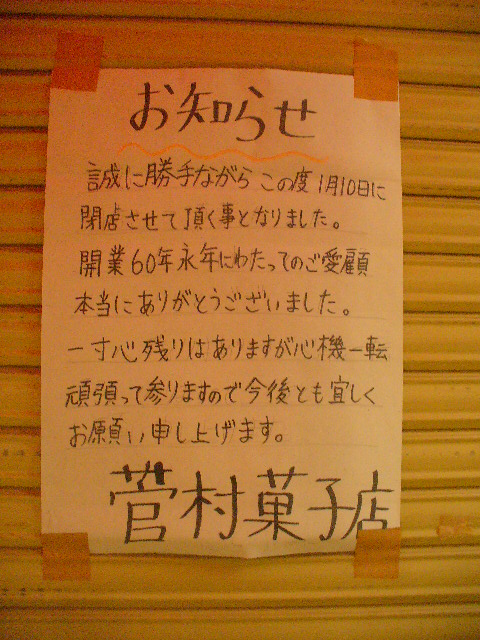 お知らせ
誠に勝手ながら この度 1月10日に
閉店させて頂く事となりました。
開業60年永年にわたってのご愛顧
本当にありがとうございました。
一寸心残りはありますが心機一転
頑張って参りますので今後とも宜しく
お願い申し上げます。
菅村菓子店